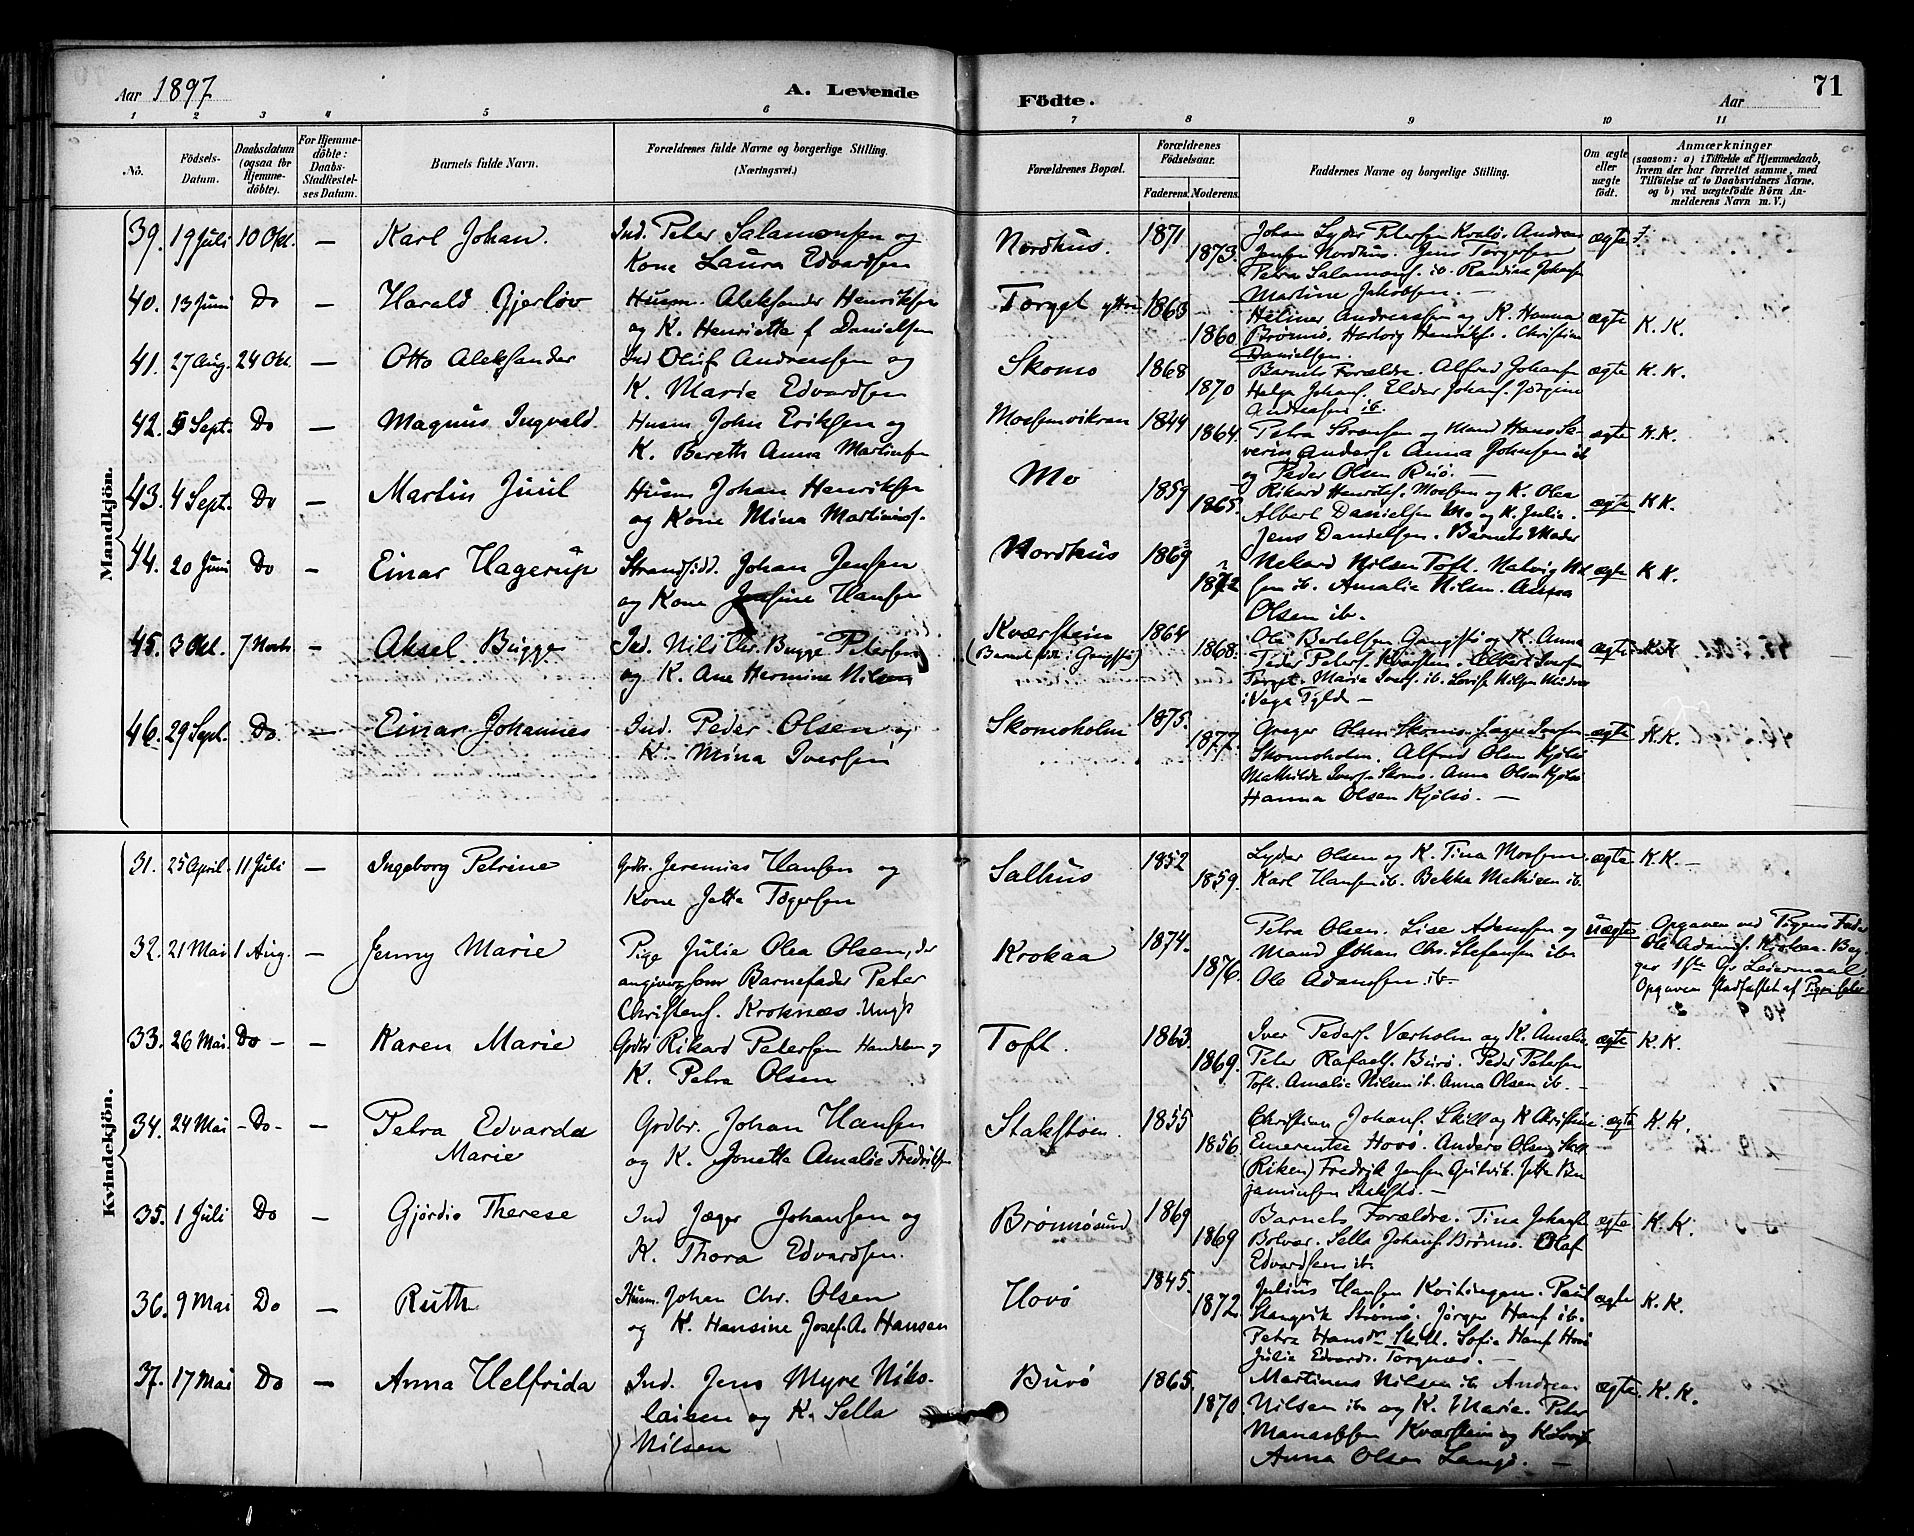 Aar 1897
A. Levende
Födte.
Aar
71
1 2 3 4 5 6 7 8 9 10 11
No.
Födsels-
Datum.
Daabsdatum
(ogsaa for
Hjemme-
döbte).
For Hjemme-
döbte:
Daabs-
Stadfæstel-
ses Datum.
Barnets fulde Navn.
Forældrenes fulde Navne og borgerlige Stilling.
(Næringsvei.)
Forældrenes Bopæl.
Forældrenes
Födselsaar.
Faderens. Moderens.
Faddernes Navne og borgerlige Stilling.
Om ægte
eller
uægte
födt.
Anmærkninger
(saasom: a) i Tilfælde af Hjemmedaab,
hvem der har forrettet samme, med
Tilföielse af to Daabsvidners Navne,
og b) ved uægtefödte Börn An-
melderens Navn m. V.)
Mandkjön.
39. 19 Juli 10 Okt. — Karl Johan. Ind. Peter Salamonsen og
Kone Laura Edvardsen
Nordhus. 1871 1873. ægte
Jensen Nordhus. Jens Torgersen
Petra Salamons. ib. Randine Johans
Martine Jakobsen. —
40. 13 Juni Do — Harald Gjerlöv Husm. Aleksander Henriksen
og K. Henriette f Danielsen
Torget 1863 1860 Helmer Andreassen og K. Hanna
Brönnö. Hartvig Henriks. Christine
Danielsen.
ægte K. K.
41. 27 Aug. 24 Okt. — Otto Aleksander Ind Oluf Andreassen og
K. Marie Edvardsen
Skomo 1868 1870 Barnets Forældre. Alfred Johans
Helga Johans. Elder Johans. Jörgine
Andreasens ib.
ægte K. K.
42. 5 Sept. Do — Magnus Ingvald. Husm John Eriksen og
K. Bereth Anna Martinsen
1844 1864. Petra Sörensen og Mand Hans Se-
verin Anders. Anna Johnsen ib
og Peder Olsen Buö. —
ægte K. K.
43. 4 Sept. Do — Martin Juul Husm Johan Henriksen
og Kone Mina Martinuss.
Mo 1859 1865. Rikard Henriks. Moesem og K. Olea
Albert Danielsen Mo og K. Julie.
Jens Danielsen. Barnets Moder
ægte K K.
44. 20 Juni Do — Einar Hagerup Strandsidd. Johan Jensen
og Kone Josefine Hansen
Nordhus 1869 1872 Nekard Nilsen Toft. Halvig Nil
sen ib. Amalie Nilsen. Anna
Olsen ib.
ægte K K.
45. 3 Okt. 7 Novb — Aksel Bugge Ind. Nils Chr. Bugge Petersen
og K. Ane Hermine Nilsen
Kværstein 1864 1868. Ole Bertelsen Gangstö og K. Anna
(Barnet födt i Gangstö) Peder Peters. Kværstein. Albert Iversen
Torget. Marie Ivers. ib. Lovise Nilsen
i Vega Fyld —
ægte K.K
46. 29 Sept. Do — Einar Johannes Ind. Peder Olsen og
K. Mina Iversen
Skomoholm 1875. 1877. Greger Olsen Skomo. Iversen
Skomoholm. Alfred Olsen Kjölsö
Mathilde Ivers. Skomo. Anna Olsen Kjölsö
Hanna Olsen Kjölsö. —
ægte K.K.
Kvindekjön.
31. 25 April. 11 Juli — Ingeborg Petrine Gdbr. Jeremias Hansen og
Kone Jetta Torgersen
Salhus 1852 1859. Lyder Olsen og K. Tina Moesem.
Karl Hansen ib. Bekka Mathisen ib.
ægte K. K. —
32. 21 Mai 1 Aug. — Jenny Marie Pige Julie Olea Olsen, der
angiver som Barnefader Peter
Christens. Kroknæs Ungk
Krokaa 1874. 1876. Petra Olsen. Lise Adamsen og
Mand Johan Chr. Stefansen ib.
Ole Adamsen. ib. —
uægte Opgaven ved Pigens Fader
Ole Adams. Krokaa.
Opgaven stadfæstet af Pigen selv
33. 26 Mai. Do — — Karen Marie Gdbr Rikard Petersen Handelsm. og
K. Petra Olsen
Toft. 1863 1869. Iver Peders. Værholm og K. Amalie
Peter Rafaels. Burö. Peder Petersen
Toft. Amalie Nilsen ib. Anna Olsen ib. —
ægte K. K.
34. 24 Mai - Do - — Petra Edvarda
Marie
Gdbr. Johan Hansen
og K. Jonetta Amalie Fredriksen
1855 1856 Christian Johans. Skill og K Christine
Emerentse Hovö. Anders Olsen Skill
(Riken) Fredrik Jensen Ben
jaminsen Stakstö. —
ægte K. K.
35. 1 Juli Do — Gjördis Therese Ind Jæger Johansen og
K. Thora Edvardsen.
Brönnösund 1869 1869 Barnets Forældre. Tina Johans
Bolvær. Sella Johans. Brönnö. Olaf
Edvardsen ib.
ægte K. K.
36. 9 Mai Do — Ruth Husm. Johan Chr. Olsen
og K. Hansine Josef. A. Hansen
Hovö 1845. 1872. Julius Hansen Kvitingen. Paul
Stangvik Strömö. Jörgen Hans ib.
Petra Hansdr Skill. Sofie Hans Hovö
Julie Edvards. Torgnæs. —
ægte K. K.
37. 17 Mai Do — Anna Helfrida Ind. Jens Myre Niko-
laisen og K. Sella
Nilsen
Burö 1865. 1870. Martinus Nilsen ib Andreas
Nilsen ib og K. Marie. Peter
Manassesen Kværstein og K Lovise
Anna Olsen Langö. —
ægte K. K.